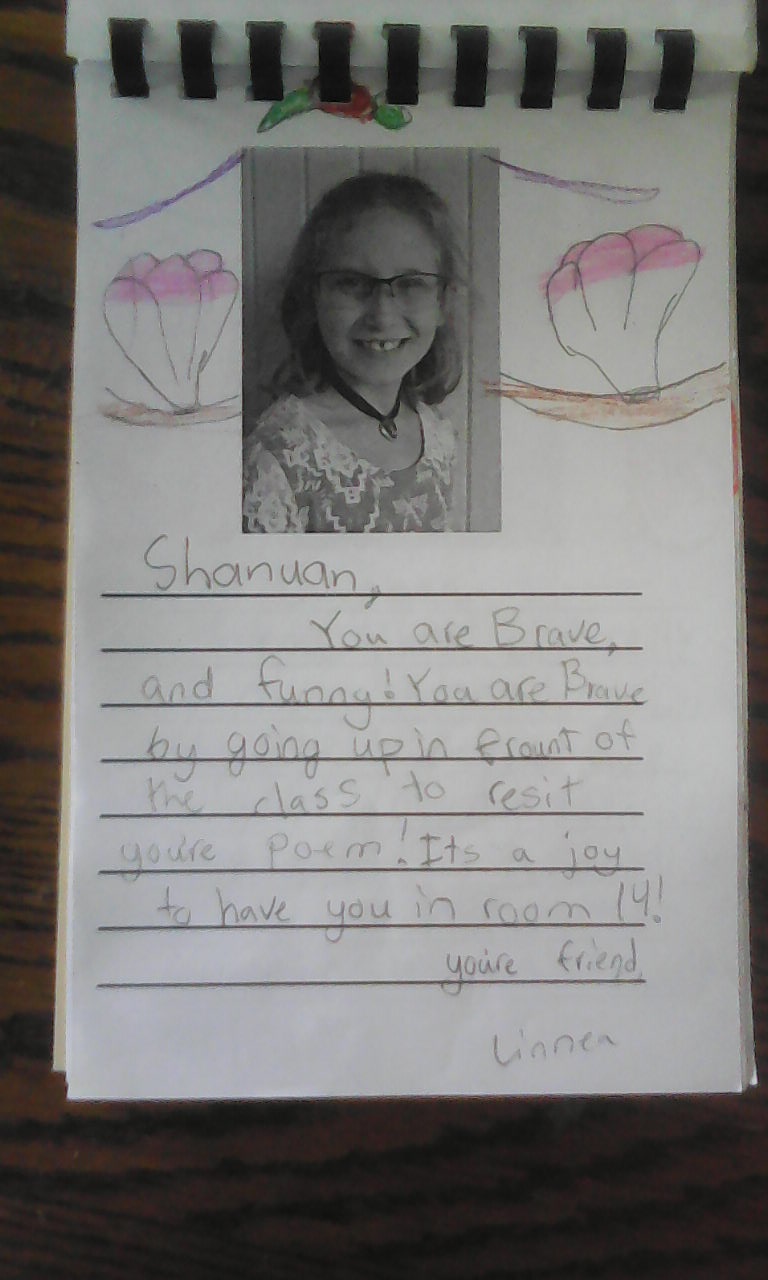 Shanuan,
You are Brave,
and funny! You are Brave
by going up in frount of
the class to resit
you're Poem! Its a joy
to have you in room 14!
you're friend,
Linnea